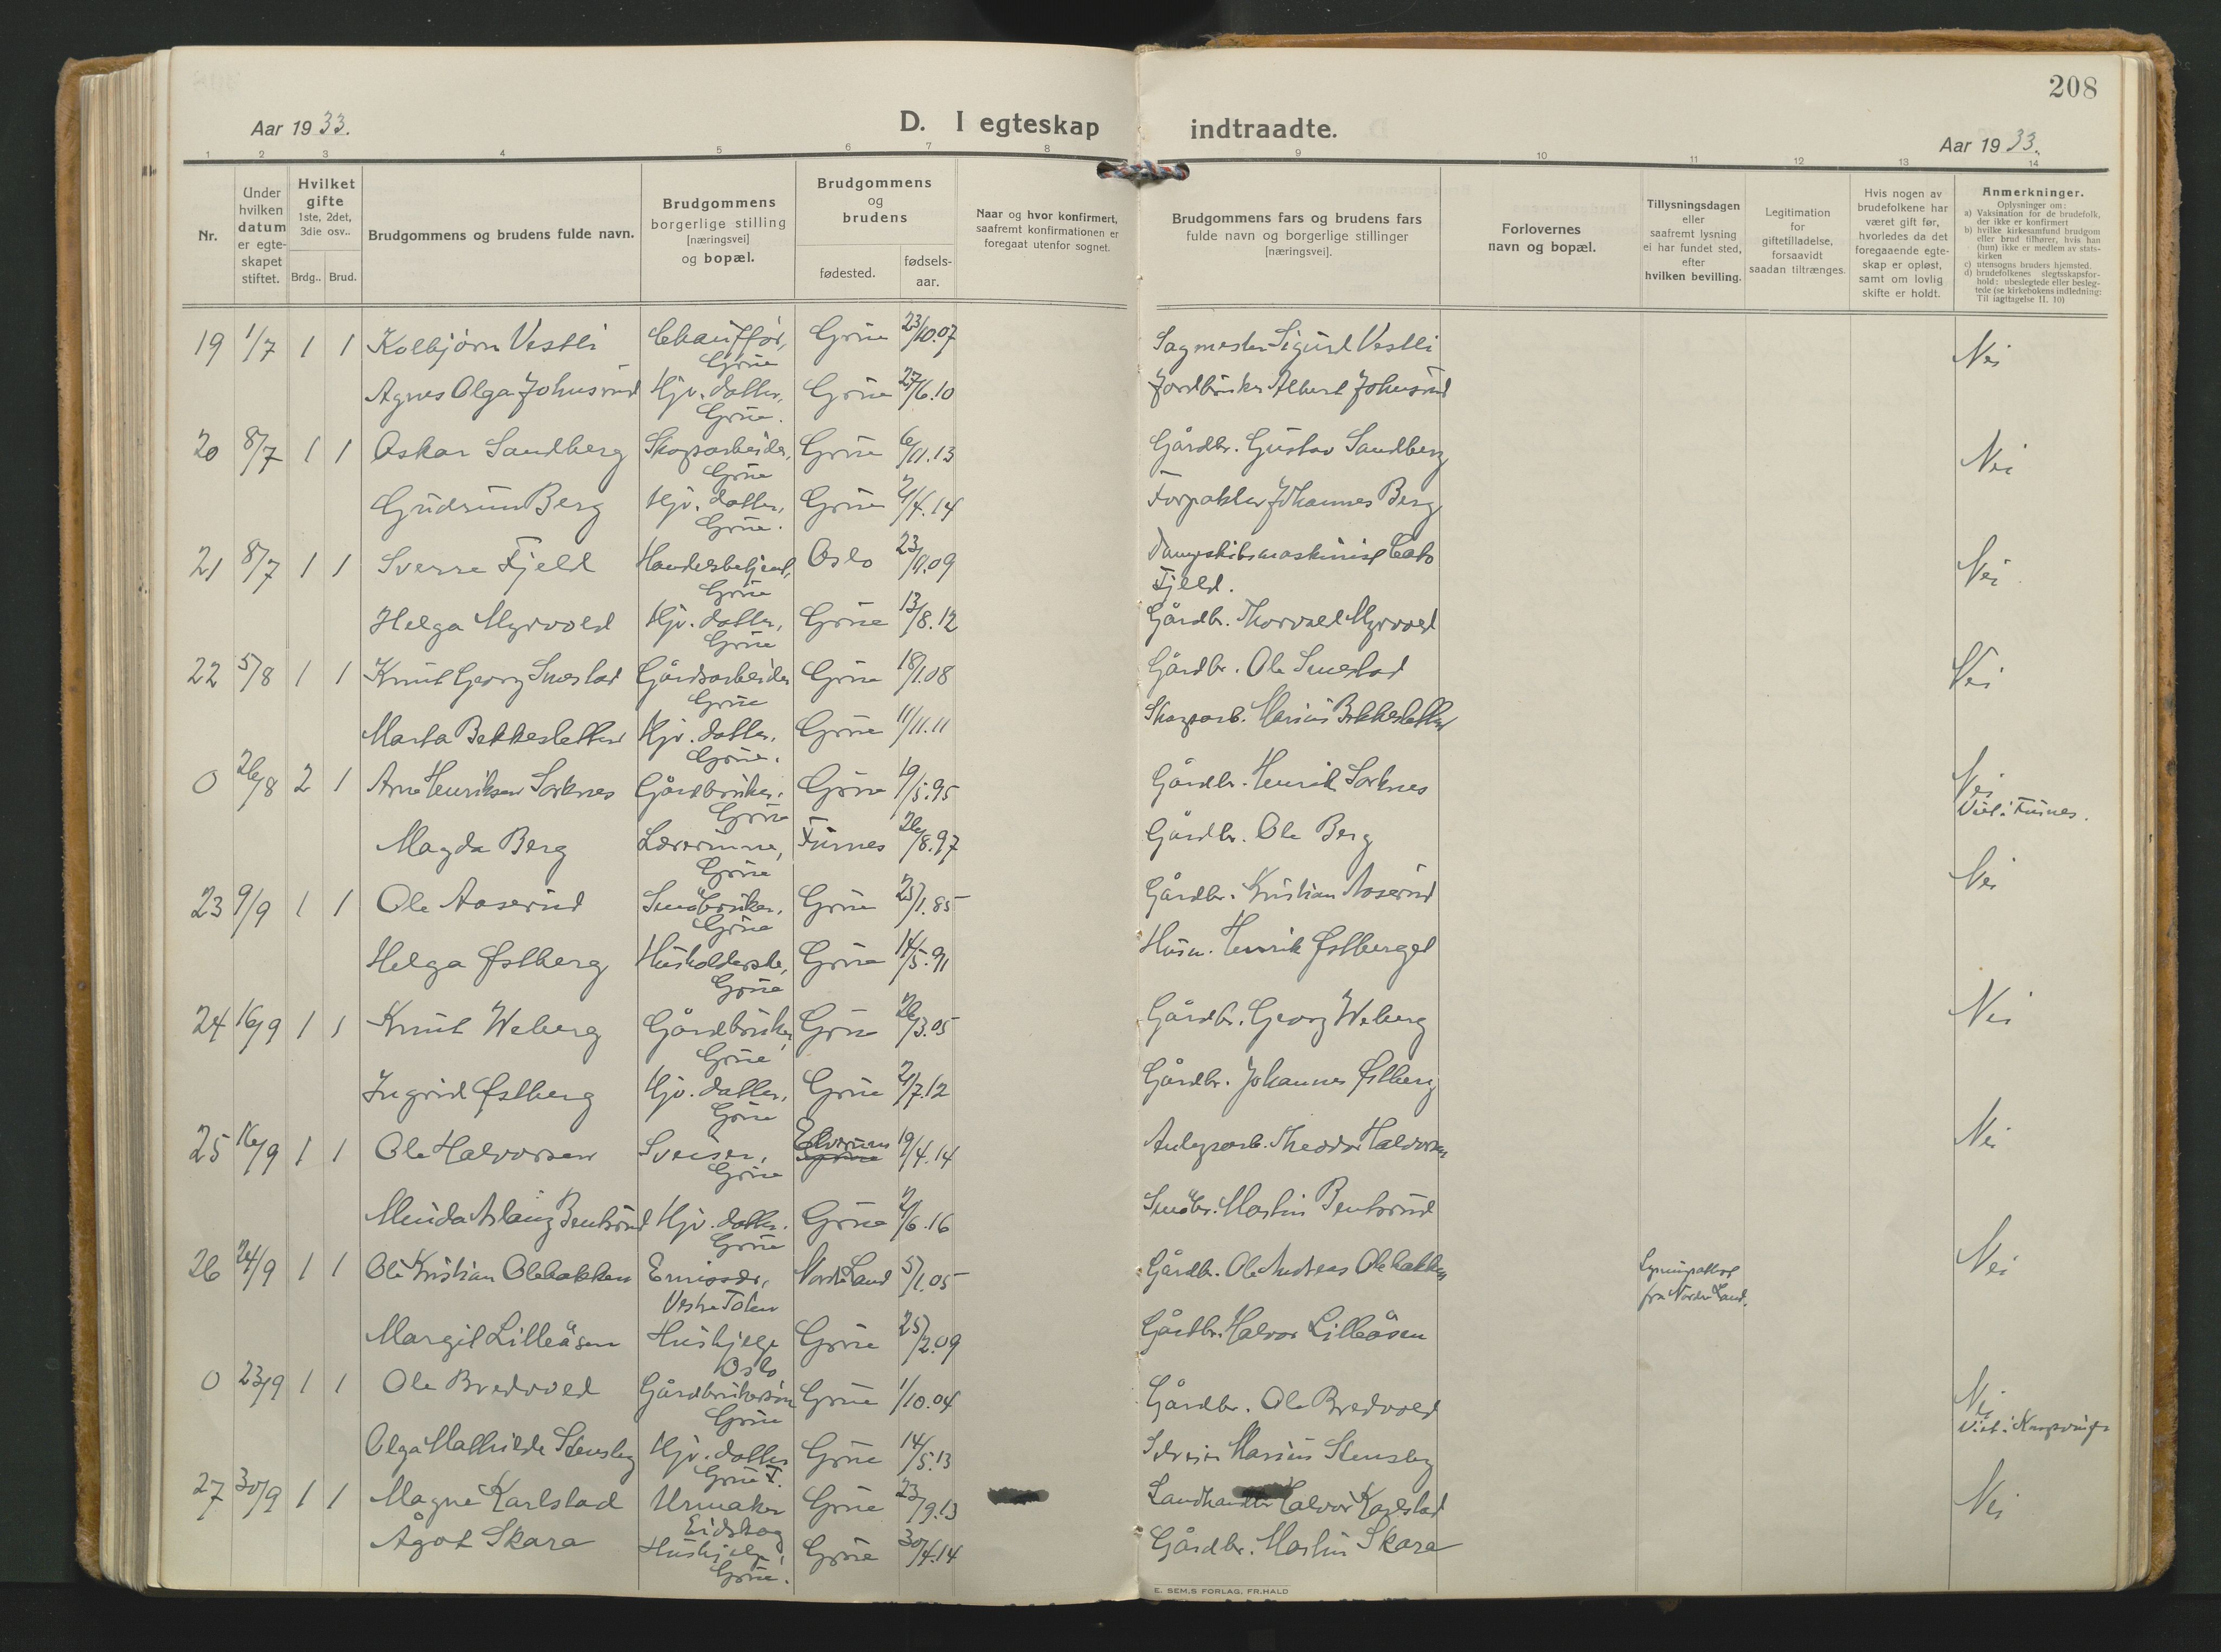 208
Aar 1933.
D. I egteskap indtraadte.
Aar 1933.
1 2 3 4 5 6 7 8 9 10 11 12 13 14
Nr.
Under hvilken datum er egte-skapet stiftet.
Hvilket gifte 1ste, 2det, 3die osv..
Brdg.. Brud.
Brudgommens og brudens fulde navn.
Brudgommens borgerlige stilling [næringsvei] og bopæl.
Brudgommens og brudens
fødested.
fødsels-aar.
Naar og hvor konfirmert, saafremt konfirmationen er foregaat utenfor sognet.
Brudgommens fars og brudens fars fulde navn og borgerlige stillinger [næringsvei].
Forlovernes navn og bopæl.
Tillysningsdagen eller saafremt lysning ei har fundet sted, efter hvilken bevilling.
Legitimation for giftetilladelse, forsaavidt saadan tiltrænges.
Hvis nogen av brudefolkene har været gift før, hvorledes da det foregaaende egte-skap er opløst, samt om lovlig skifte er holdt.
Anmerkninger.
Oplysninger om:
a) Vaksination for de brudefolk, der ikke er konfirmert
b) hvilke kirkesamfund brudgom eller brud tilhører, hvis han (hun) ikke er medlem av stats-kirken
c) utensogns bruders hjemsted.
d) brudefolkenes slegtsskapsfor-hold: ubeslegtede eller besleg-tede (se kirkebokens indledning: Til iagttagelse II. 10)
19 1/7 1 1 Kolbjørn Vestli Chauffør, Grue Grue 23/10.07 Sagmester Sigurd Vestli Nei
Agnes Olga Johnsrud Hjv. datter, Grue. Grue 27/6.10 Jordbruker Albert Johnsrud
20 8/7 1 1 Oskar Sandberg Skogsarbeider, Grue Grue 6/11.13 Gårdbr. Gustav Sandberg Nei
Gudrun Berg Hjv. datter, Grue. Grue 21/4.14 Forpakter Johannes Berg
21 8/7 1 1 Sverre Fjeld Handelsbetjent, Grue Oslo 23/9.09 Dampskibsmaskinist Cato Fjeld. Nei
Helga Myrvold Hjv. datter, Grue Grue 13/8.12 Gårdbr. Thorvald Myrvold
22 5/8 1 1 Knut Georg Smestad Gårdsarbeider Grue Grue 18/1.08 Gårdbr. Ole Smestad Nei
Marta Bekkesletten Hjv. datter. Grue. Grue 11/11.11 Skogsarb. Marius Bekkesletten
0 26/8 2 1 Arne Henriksen Sorknes Gårdbruker. Grue Grue 19/5.95 Gårdbr. Henrik Sorknes Nei
Viet i Furnes.
Magda Berg Lærerinne, Grue Furnes 26/8.97 Gårdbr. Ole Berg
23 9/9 1 1 Ole Aaserud Småbruker. Grue Grue 25/1.85 Gårdbr. Kristian Aaserud Nei
Helga Østberg Husholderske, Grue Grue 14/5.91 Husm. Henrik Østberget
24 16/9 1 1 Knut Weberg Gårdbruker, Grue Grue 26/3.05 Gårdbr. Georg Weberg Nei
Ingrid Østberg Hjv. datter, Grue Grue 21/7.12 Gårdbr. Johannes Østberg
25 16/9 1 1 Ole Halvorsen Sveiser, Grue Elverum 19/4.14 Anlegsarb. Theodor Halvorsen Nei
Minda Aslaug Bentsrud Hjv. datter. Grue Grue Småbr. Martin Bentsrud
26 24/9 1 1 Ole Kristian Olebakken Emissær, Vestre Toten Nordre Land 5/1.05 Gårdbr. Ole Andreas Olebakken Lysningsattest fra Nordre Land. Nei
Margit Lilleåsen Hushjelp Oslo Grue 25/2.09 Gårdbr. Halvor Lilleåsen
0 23/9 1 1 Ole Bredvold Gårdbrukersøn Grue Grue 1/10.04 Gårdbr. Ole Bredvold Nei
Viet i Kongsvinger
Olga Mathilde Stensby Hjv. datter Grue F. Grue 14/5.13 Sveiser Marius Stensby
27 30/9 1 1 Magne Karlstad Urmaker Eidskog Grue 23/9.13 Landhandler Halvor Karlstad Nei
Ågot Skara Hushjelp, Grue. Grue 30/4.14 Gårdbr. Martin Skara
E. SEM.S FORLAG, FR.HALD